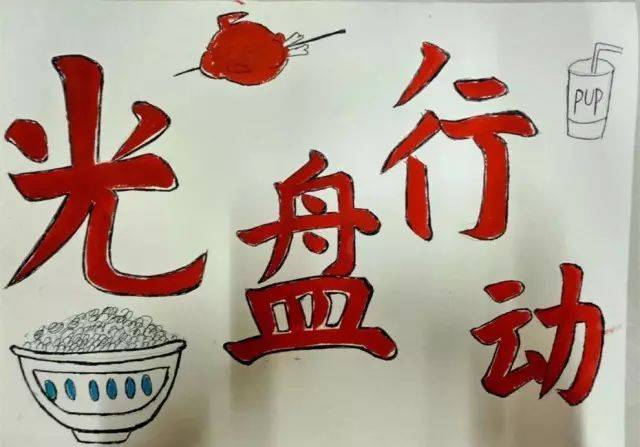 光盘行动
PUP